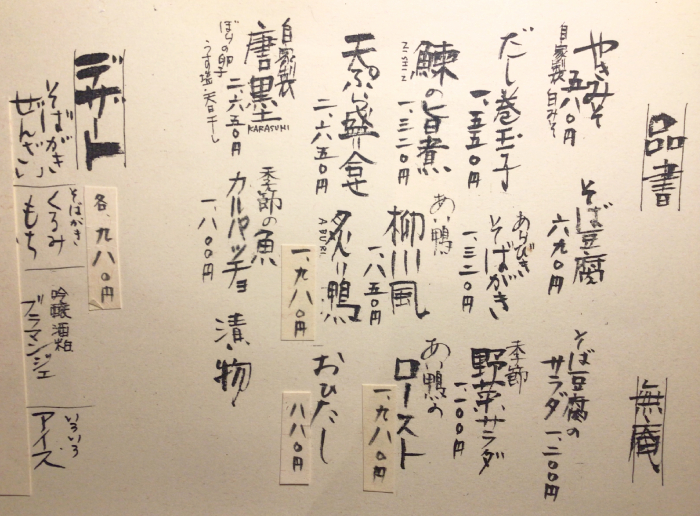 品書
無庵
やきみそ
自家製 白みそ
五八〇円
そば豆腐
六九〇円
そば豆腐の
サラダ 一、二〇〇円
だし巻玉子
一、五五〇円
あらびき
そばがき
一、三二〇円
季節
野菜サラダ
一、一〇〇円
鰊の旨煮
NISIN
一、三二〇円
あい鴨
柳川風
一、八五〇円
あい鴨の
ロースト
一、九八〇円
天ぷら盛り合せ
二、六五〇円
炙り鴨
ABURI
一、九八〇円
おひたし
八八〇円
自家製
唐墨
KARASUMI
ぼらの卵子
うす塩・天日干し
二、六五〇円
季節の魚
カルパッチョ
一、八〇〇円
漬物
デザート
各、九八〇円
そばがき
ぜんざい
そばがき
くるみ
もち
吟醸酒粕
ブラマンジェ
いろいろ
アイス